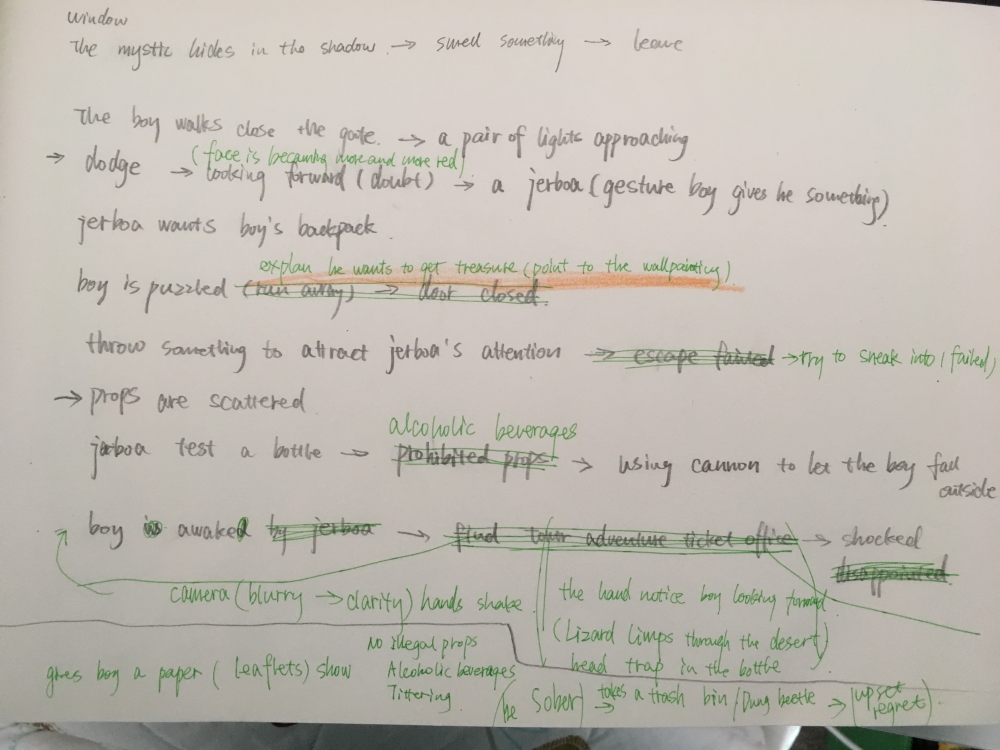 window
The mystic hides in the shadow. → smell something → leave
The boy walks close the gate. → a pair of lights approaching
(face is becoming more and more red)
→ dodge → looking forward (doubt) → a jerboa (gesture boy gives he something)
jerboa wants boy's backpack.
explan he wants to get treasure (point to the wallpainting)
boy is puzzled (run away) → door closed.
throw something to attract jerboa's attention → escape failed → try to sneak into (failed)
→ props are scattered
alcoholic beverages
jerboa test a bottle → prohibited props → using cannon to let the boy fall
outside
boy is awaked by jerboa → find tour adventure ticket office → shocked
disappointed
camera (blurry → clarity) hands shake.
the hand notice boy looking forward.
(Lizard limps through the desert)
head trap in the bottle
gives boy a paper (leaflets) show
No illegal props
Alcoholic beverages
Tittering.
(be Sober) → takes a trash bin / Dung beetle → (upset
regret).